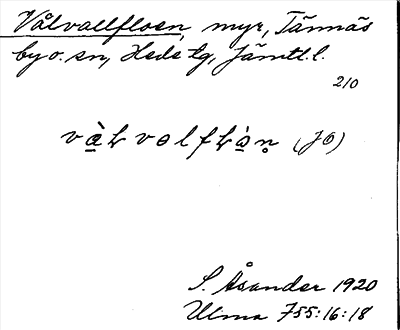 Vålvallfloen, myr, Tännäs
by o. sn, Hede tg, Jämtl. l.
210
(JÖ)
S. Åsander 1920
Ulma 755:16:18